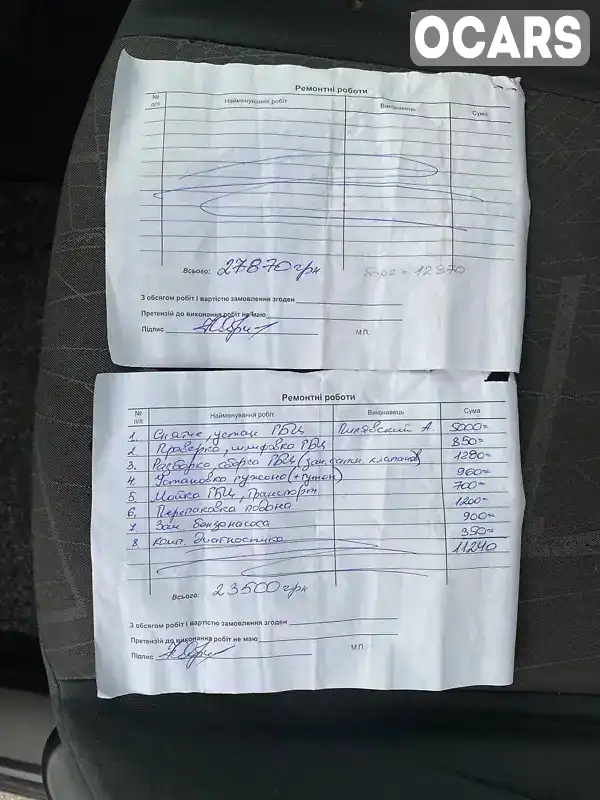 OCARS
Ремонтні роботи
№ п/п Найменування робіт Виконавець Сума
Всього: 27870 грн борг = 12870
З обсягом робіт і вартістю замовлення згоден
Претензій до виконання робіт не маю
Підпис М.П.
Ремонтні роботи
№ п/п Найменування робіт Виконавець Сума
1. Снятие, устан ГБЦ Пилявский А. 5000=
2. Проверка, шлифовка ГБЦ 850=
3. Разборка, сборка ГБЦ (зам. сальн. клапанов) 1280=
4. Установка 960=
5. Мойка ГБЦ, транспорт 700=
6. Перепаковка подона 1200=
7. Зам. бензонасоса 900=
8. комп. диагностика 350=
11240
Всього: 23500 грн
З обсягом робіт і вартістю замовлення згоден
Претензій до виконання робіт не маю
Підпис М.П.